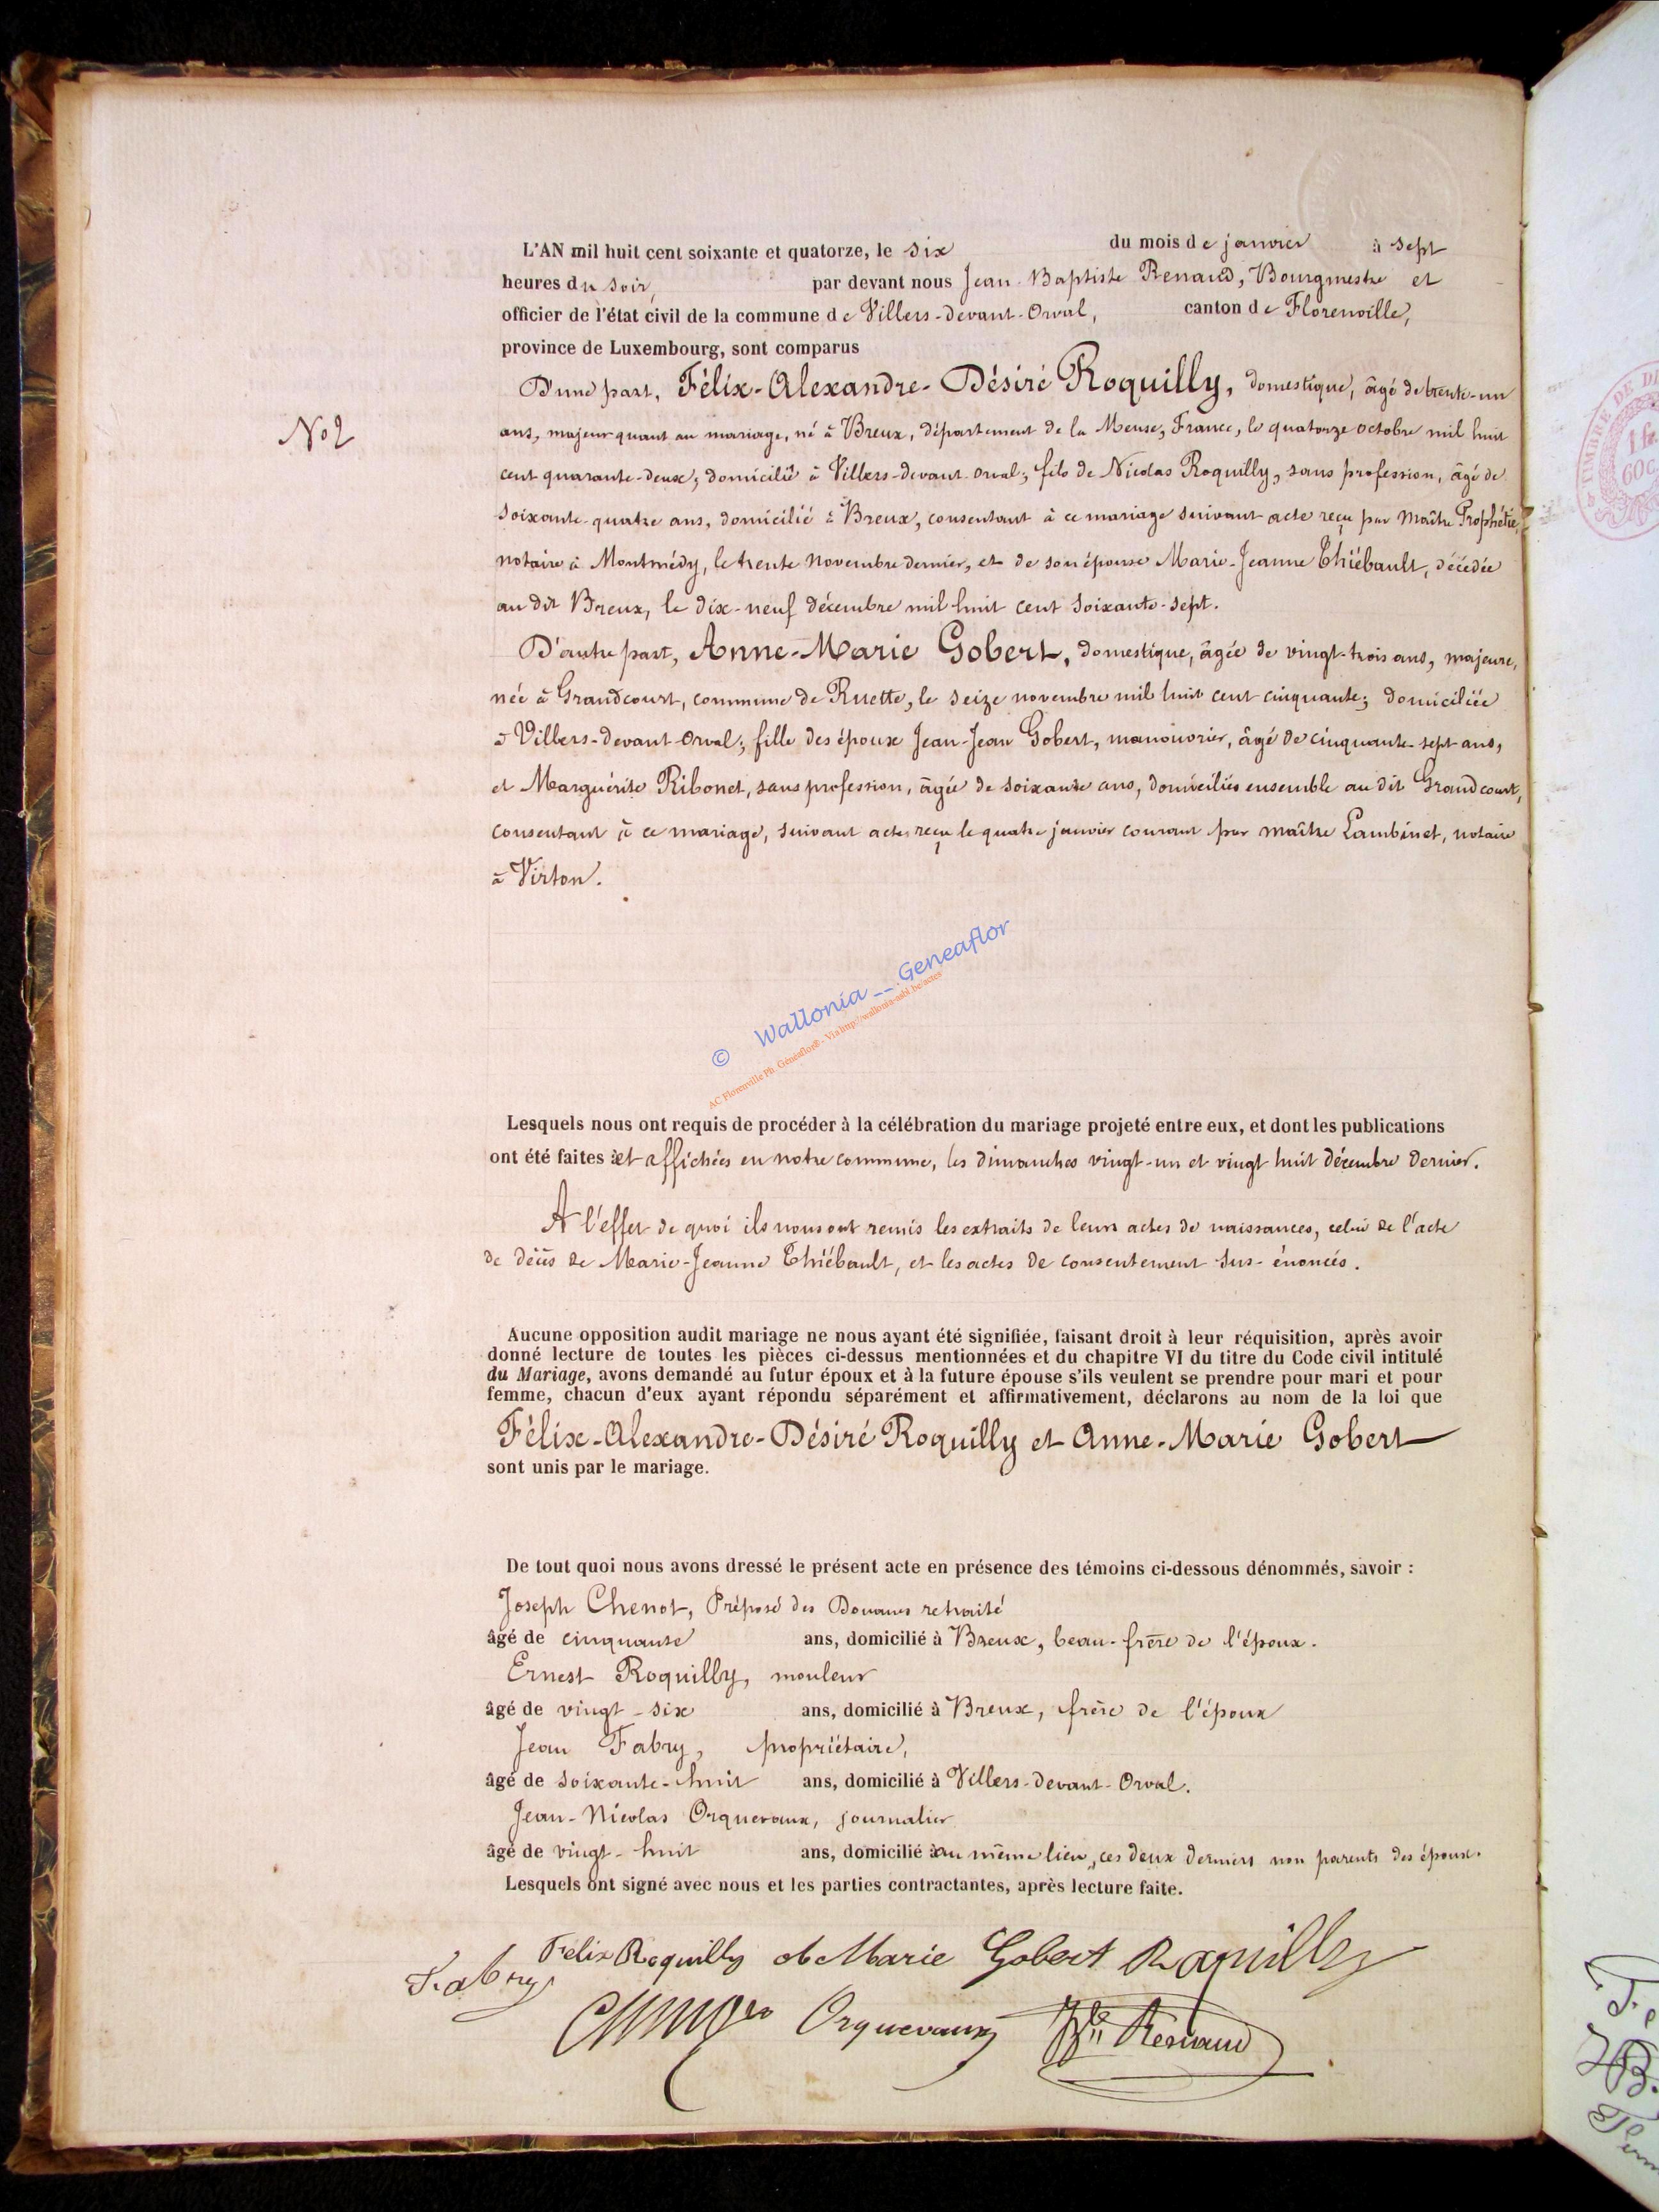 L'AN mil huit cent soixante et quatorze, le six du mois de janvier à sept
heures du soir, par devant nous Jean-Baptiste Renaud, Bourgmestre et
officier de l'état civil de la commune de Villers-devant-Orval, canton de Florenville,
province de Luxembourg, sont comparus
D'une part, Félix-Alexandre-Désiré Roquilly, domestique, âgé de trente-un
N° 2
ans, majeur quant au mariage, né à Breux, département de la Meuse, France, le quatorze octobre mil huit
cent quarante-deux; domicilié à Villers-devant-Orval; fils de Nicolas Roquilly, sans profession, âgé de
soixante-quatre ans, domicilié à Breux, consentant à ce mariage suivant acte reçu par Maître Prophétie,
notaire à Montmédy, le trente novembre dernier, et de son épouse Marie-Jeanne Thiébault, décédée
au dit Breux, le dix-neuf décembre mil huit cent soixante-sept.
D'autre part, Anne-Marie Gobert, domestique, âgée de vingt-trois ans, majeure,
née à Grandcourt, commune de Ruette, le seize novembre mil huit cent cinquante; domiciliée
à Villers-devant-Orval; fille des époux Jean-Jean Gobert, manouvrier, âgé de cinquante-sept ans,
et Marguérite Ribonet, sans profession, âgée de soixante ans, domiciliés ensemble au dit Grandcourt,
consentant à ce mariage, suivant acte reçu le quatre janvier courant par maître Lambinet, notaire
à Virton.
© Wallonia __.Geneaflor
AC Florenville Ph. Généaflor® - Via http://wallonia-asbl.be/actes
Lesquels nous ont requis de procéder à la célébration du mariage projeté entre eux, et dont les publications
ont été faites à et affichées en notre commune, les dimanches vingt-un et vingt huit décembre dernier.
A l'effet de quoi ils nous ont remis les extraits de leurs actes de naissances, celui de l'acte
de décès de Marie-Jeanne Thiébault, et les actes de consentement sus-énoncés.
Aucune opposition audit mariage ne nous ayant été signifiée, faisant droit à leur réquisition, après avoir
donné lecture de toutes les pièces ci-dessus mentionnées et du chapitre VI du titre du Code civil intitulé
du Mariage, avons demandé au futur époux et à la future épouse s'ils veulent se prendre pour mari et pour
femme, chacun d'eux ayant répondu séparément et affirmativement, déclarons au nom de la loi que
Félix-Alexandre-Désiré Roquilly et Anne-Marie Gobert
sont unis par le mariage.
De tout quoi nous avons dressé le présent acte en présence des témoins ci-dessous dénommés, savoir :
Joseph Chenot, Préposé des Douanes retraité
âgé de cinquante ans, domicilié à Breux, beau-frère de l'époux.
Ernest Roquilly, mouleur
âgé de vingt-six ans, domicilié à Breux, frère de l'époux
Jean Fabry, propriétaire,
âgé de soixante-huit ans, domicilié à Villers-devant-Orval.
Jean-Nicolas Orquevaux, journalier
âgé de vingt-huit ans, domicilié à au même lieu, ces deux derniers non parents des époux.
Lesquels ont signé avec nous et les parties contractantes, après lecture faite.
Félix Roquilly Marie Gobert Roquilly
Fabry
Orquevaux Renaud
TIMBRE DE
1 f
60c